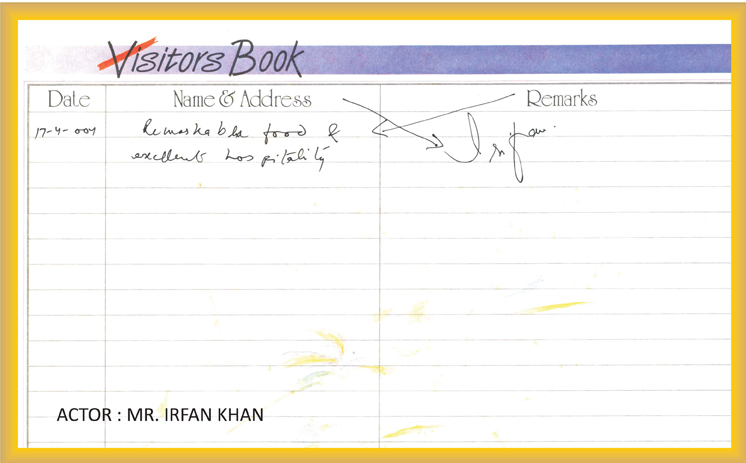 Visitors Book
Date Name & Address Remarks
17-4-004 Remarkable food & Irfan
excellent hospitality
ACTOR : MR. IRFAN KHAN